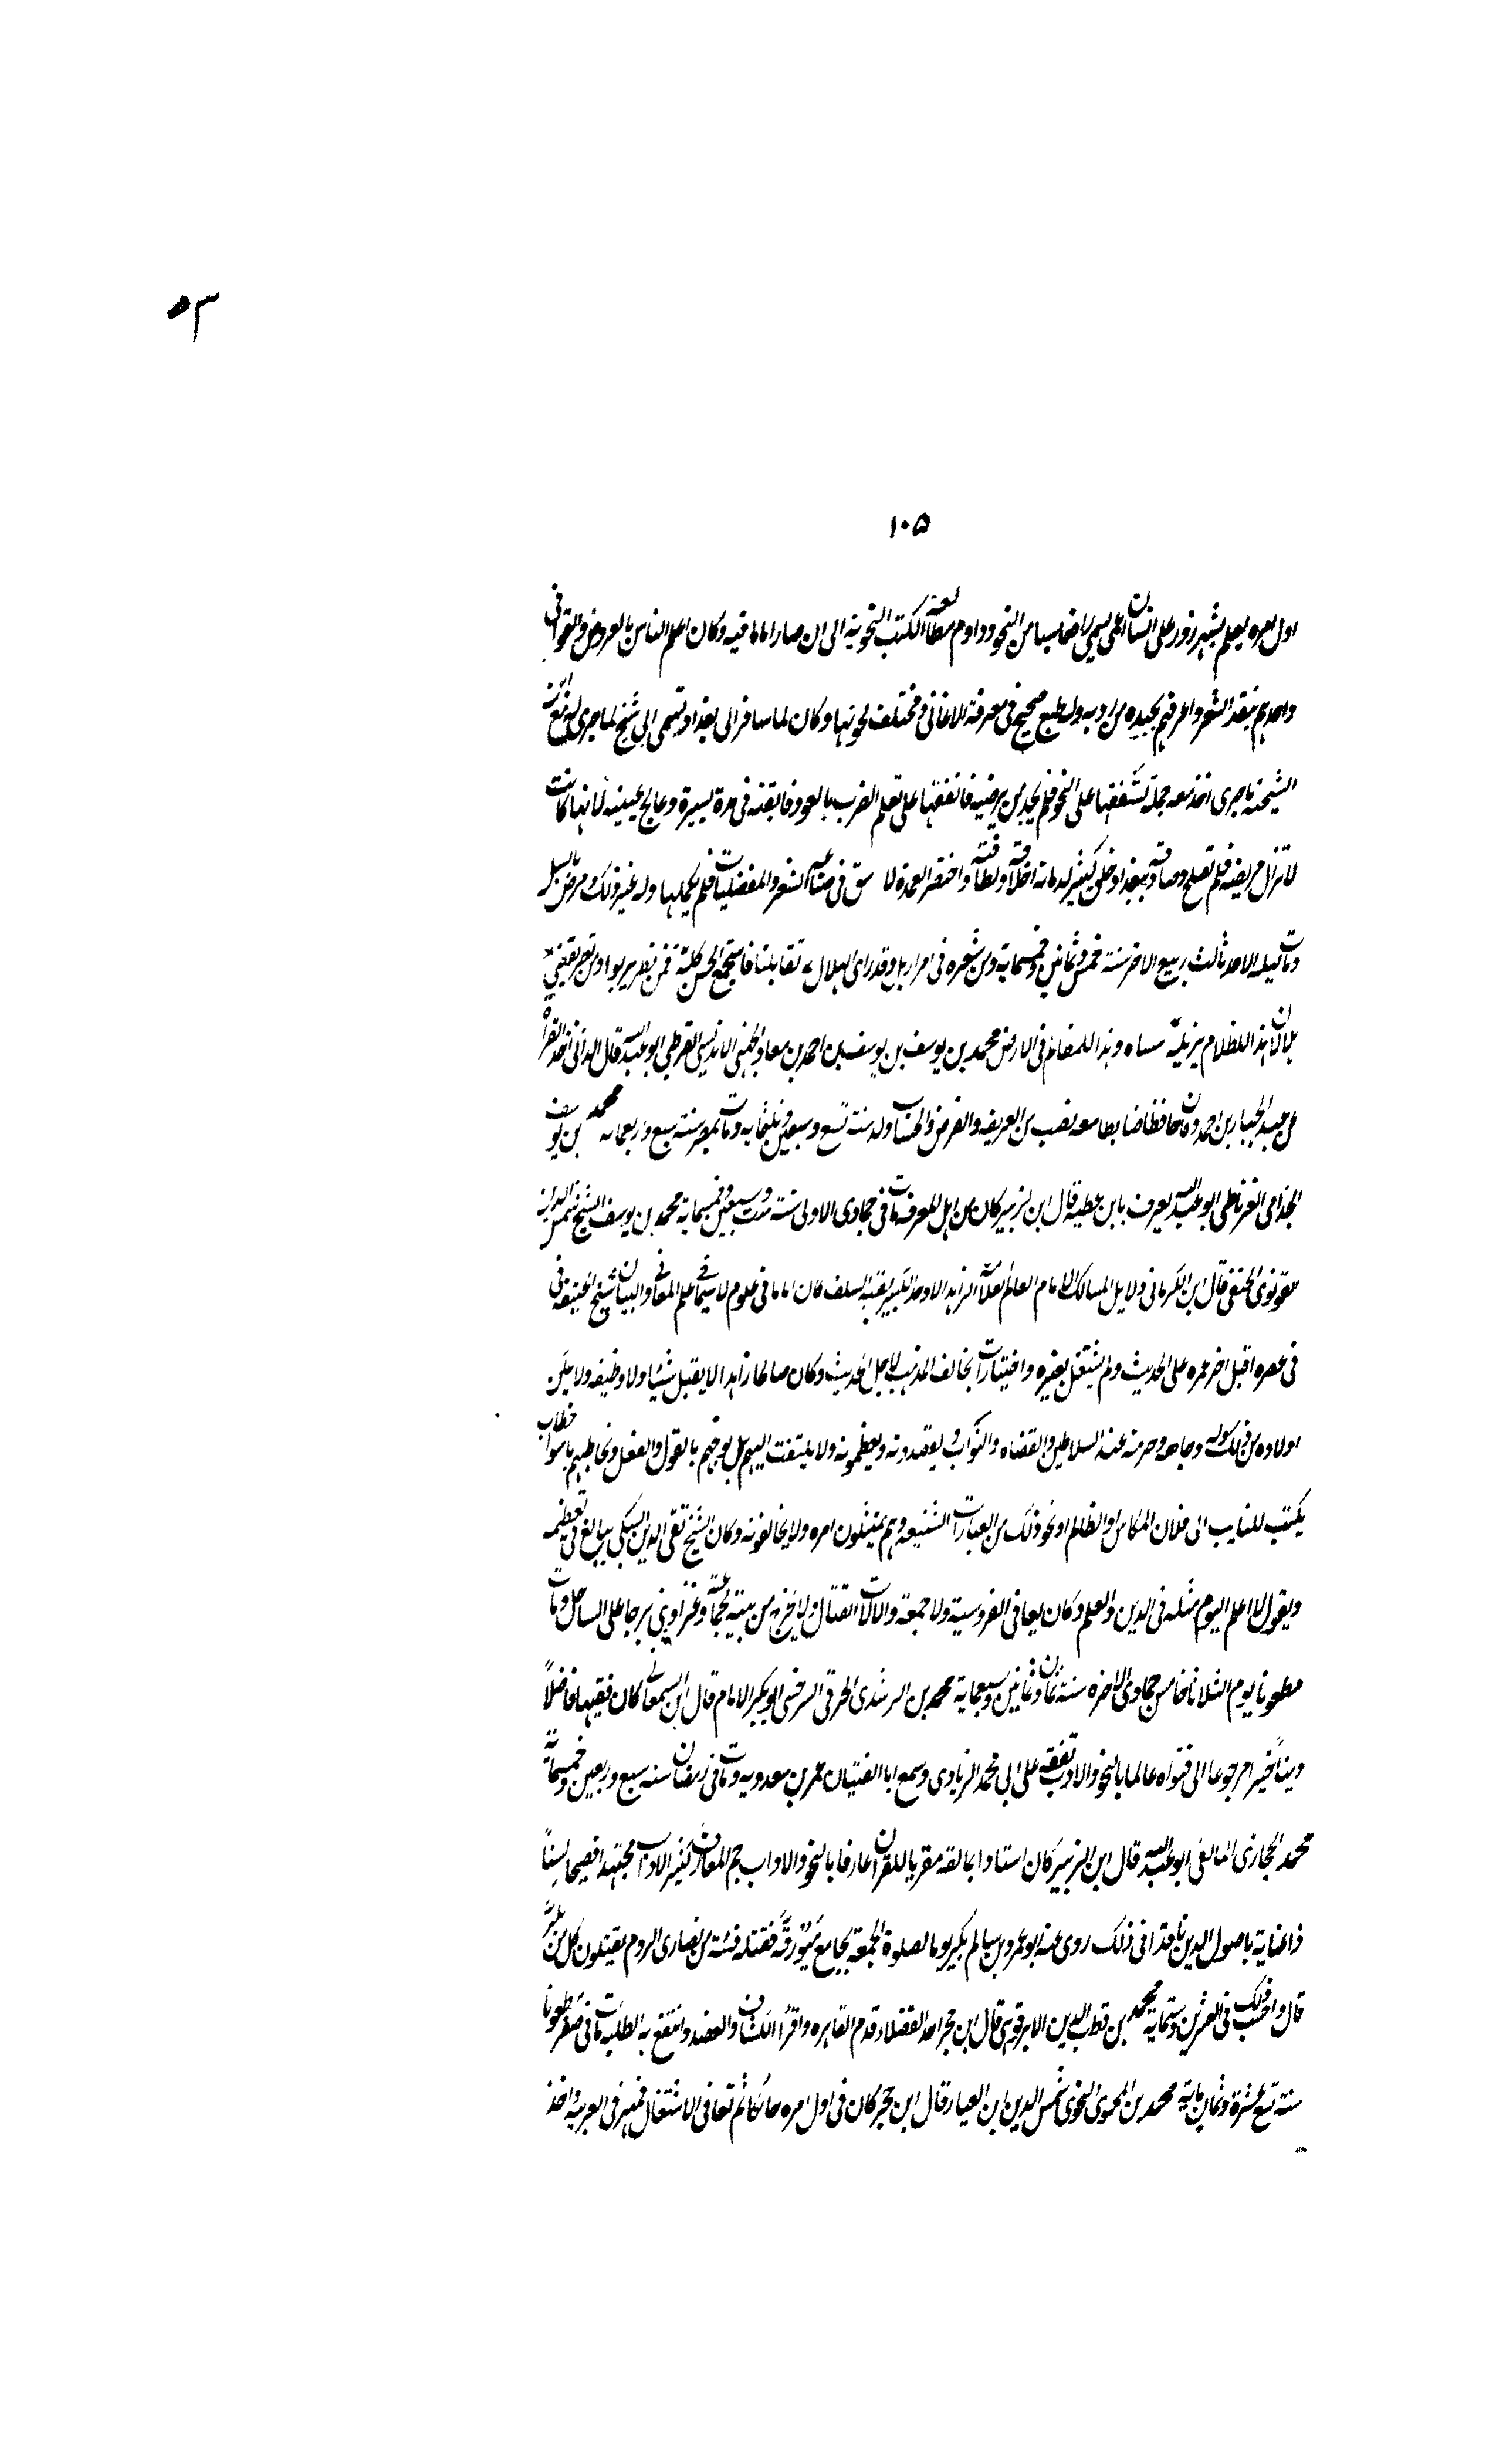 ٥٣
١٠٥
اول امره يعلم بشهرزور على انسان اعمى يسمى رافعا شيا من النحو وداوم مطالعة الكتب النحوية الى ان صار اماما فيه وكان اعلم الناس بالعروض والقوافى
واحدهم بنقد الشعر واعرفهم بجيده من رديه وله طبع صحيح فى معرفة الاغانى ومختلف لحونها وكان لما سافر الى بغداد
الشحنة ماجرى اخذ معه جملة لينفقها على النحو فلم يجد من يرضيه فانفقها على تعلم الضرب بالعود فاتقنه فى مدة يسيرة وعالج عينيه لانها كانت
لا تزال مريضة فلم تفلح وصادف ببغداد خلق كثير لدماثة اخلاقه ولطافته واختصر العمدة لا سق فى صناعة الشعر والمفضليات فلم يكملها وله غير ذلك ومرض بالسل
ومات ليلة الاحد ثالث ربيع الاخر سنة خمس وثمانين وخمسماية ومن شعره فى امرار بل وقد راى الهلال تقابلنا فاستجمع الحسن كله فمن
بلالان هذا للظلام يزيله سناه وهذا للمظالم فى الارض محمد بن يوسف بن يوسف بن احمد بن معاذ الجهنى الاندلسى القرطبى ابو عبد الله قال الدانى اخذ القراة
عن عبد الجبار بن احمد وكان حافظا ضابطا معه نصيب من العربية والفرض والحساب ولد سنة تسع وسبعين وثلثماية ومات بمصر سنة سبع وربعماية محمد بن يوسف
الجذامى الغرناطى ابو عبد الله يعرف بابن عطية قال ابن الزبير كان من اهل المعرفة مات فى جمادى الاولى سنة ست وسبعين وخمسماية محمد بن يوسف الشيخ شمس الدين
القونوى الحنفى قال ابن الكرمانى فى دلايل المسالك الامام العالم العلامة الزاهد الاوحد الكبير بقية السلف كان اماما فى علوم لا سيما فى علم المعانى والبيان شيخ الحنيفة فى
فى عصره اقبل اخر عمره على الحديث ولم يشتغل بغيره واختيارات يخالف المذهب لاجل الحديث وكان صالحا زاهدا لا يقبل شيئا ولا وظيفة ولا يمكن
اولاده من ذلك وله وجاهة وحرمة عند السلاطين والقضاه والنواب ويقصدونه ويعظمونه ولا يلتفت اليهم بل يوبخهم بالقول والفعل ويخاطبهم باسوا خطاب
يكتب للنايب الى فلان المكاس او الظالم او نحو ذلك من العبارات الشنيعه وهم يمتثلون امره ولا يخالفونه وكان الشيخ تقى الدين السبكى يبالغ فى تعظيمه
ويقول لا اعلم اليوم مثله فى الدين والعلم وكان يعانى الفروسية ولا جمعة والالات القتال ولا يخرج من بيته لجماعة وغزا وبنى برجا على الساحل ومات
مطعونا يوم الثلاثا خامس جمادى الاخره سنة ثمان وثمانين وسبعماية محمد بن السرىندى الخرقى السرخسى ابو بكر الامام قال ابن السمعانى كان فقيها فاضلا
دينا خيرا مرجوعا الى فتواه عالما بالنحو والادب تفقه على ابى محمد الزيادى وسمع ابا الفتيان عمر بن سعدويه ومات فى رمضان سنة سبع وربعين وخمسماية
محمد الحجازى المالقى ابو عبد الله قال ابن الزبير كان استادا بمالقة مقريا للقران عارفا بالنحو والاداب جم المعارف كثير الاداب مجتهدا فصيحا لسنا
ذا عناية باصول الدين نافذا فى ذلك روى عنه ابو عمرو بن سالم بكير يوما لصلوة الجمعة بجامع ميورقة فقتله فئة من نصارى الروم يقتلون كل من بكر
قال واحسب ذلك فى العشرين وستماية محمد بن قطب الدين الابرقوهى قال ابن حجر احد الفضلاء قدم القاهره واقرأ الكشاف والعضد وانتفع به الطلبة مات فى صفر مطعونا
سنة تسع عشرة وثمان ماية محمد بن الحموى النحوى شمس الدين ابن العيار قال ابن حجر كان فى اول امره حائكا ثم تعانى الاشتغال فمهر فى العربية واخذ